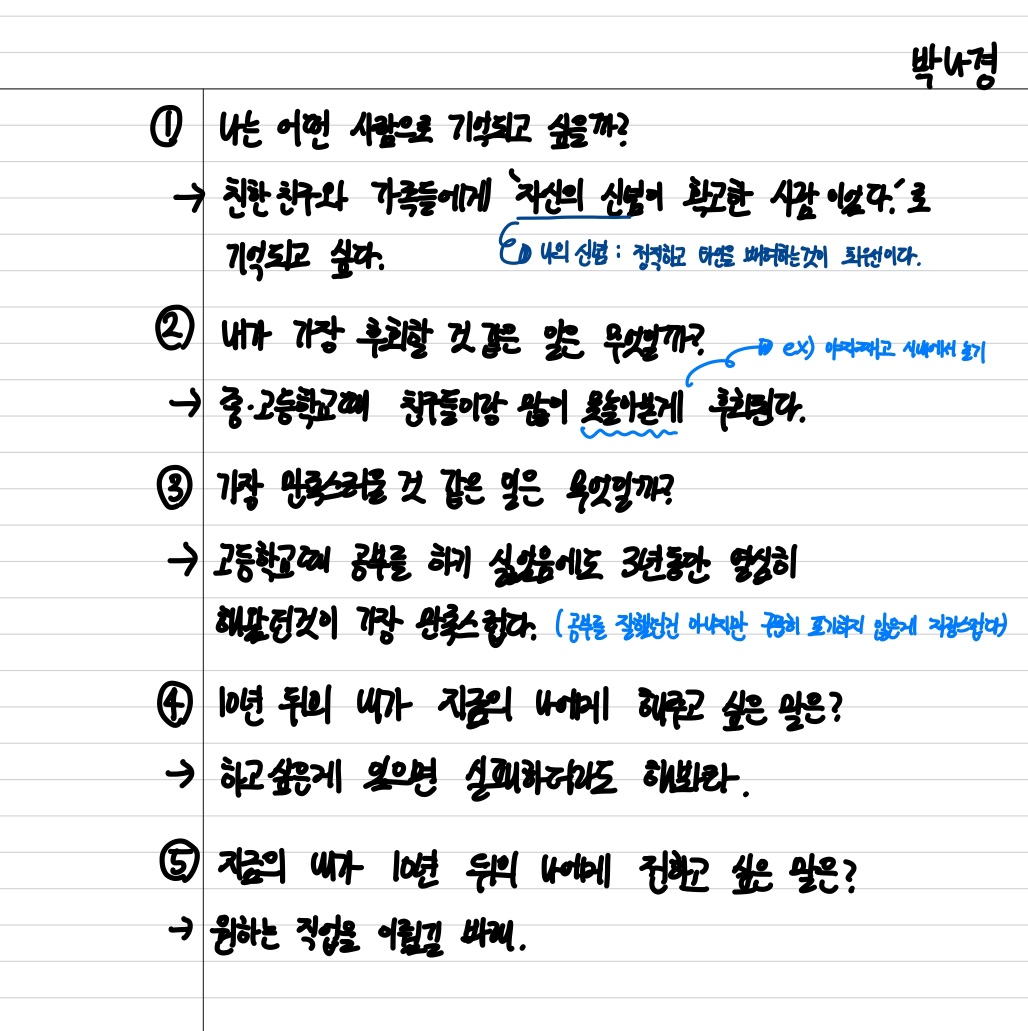 박나경
① 나는 어떤 사람으로 기억되고 싶을까?
→ 친한 친구와 가족들에게 '자신의 신념이 확고한 사람이었다.'로
기억되고 싶다.
나의 신념 : 정직하고 타인을 배려하는것이 최우선이다.
② 내가 가장 후회할 것 같은 일은 무엇일까?
ex) 야자째고 시내에서 놀기
→ 중·고등학교때 친구들이랑 많이 못놀아본게 후회된다.
③ 가장 만족스러울 것 같은 일은 무엇일까?
→ 고등학교때 공부를 하기 싫었음에도 3년동안 열심히
해왔던것이 가장 만족스럽다. (공부를 잘했던건 아니지만 꾸준히 포기하지 않은게 자랑스럽다)
④ 10년 뒤의 내가 지금의 나에게 해주고 싶은 말은?
→ 하고싶은게 있으면 실패하더라도 해봐라.
⑤ 지금의 내가 10년 뒤의 나에게 전하고 싶은 말은?
→ 원하는 직업을 이뤘길 바래.